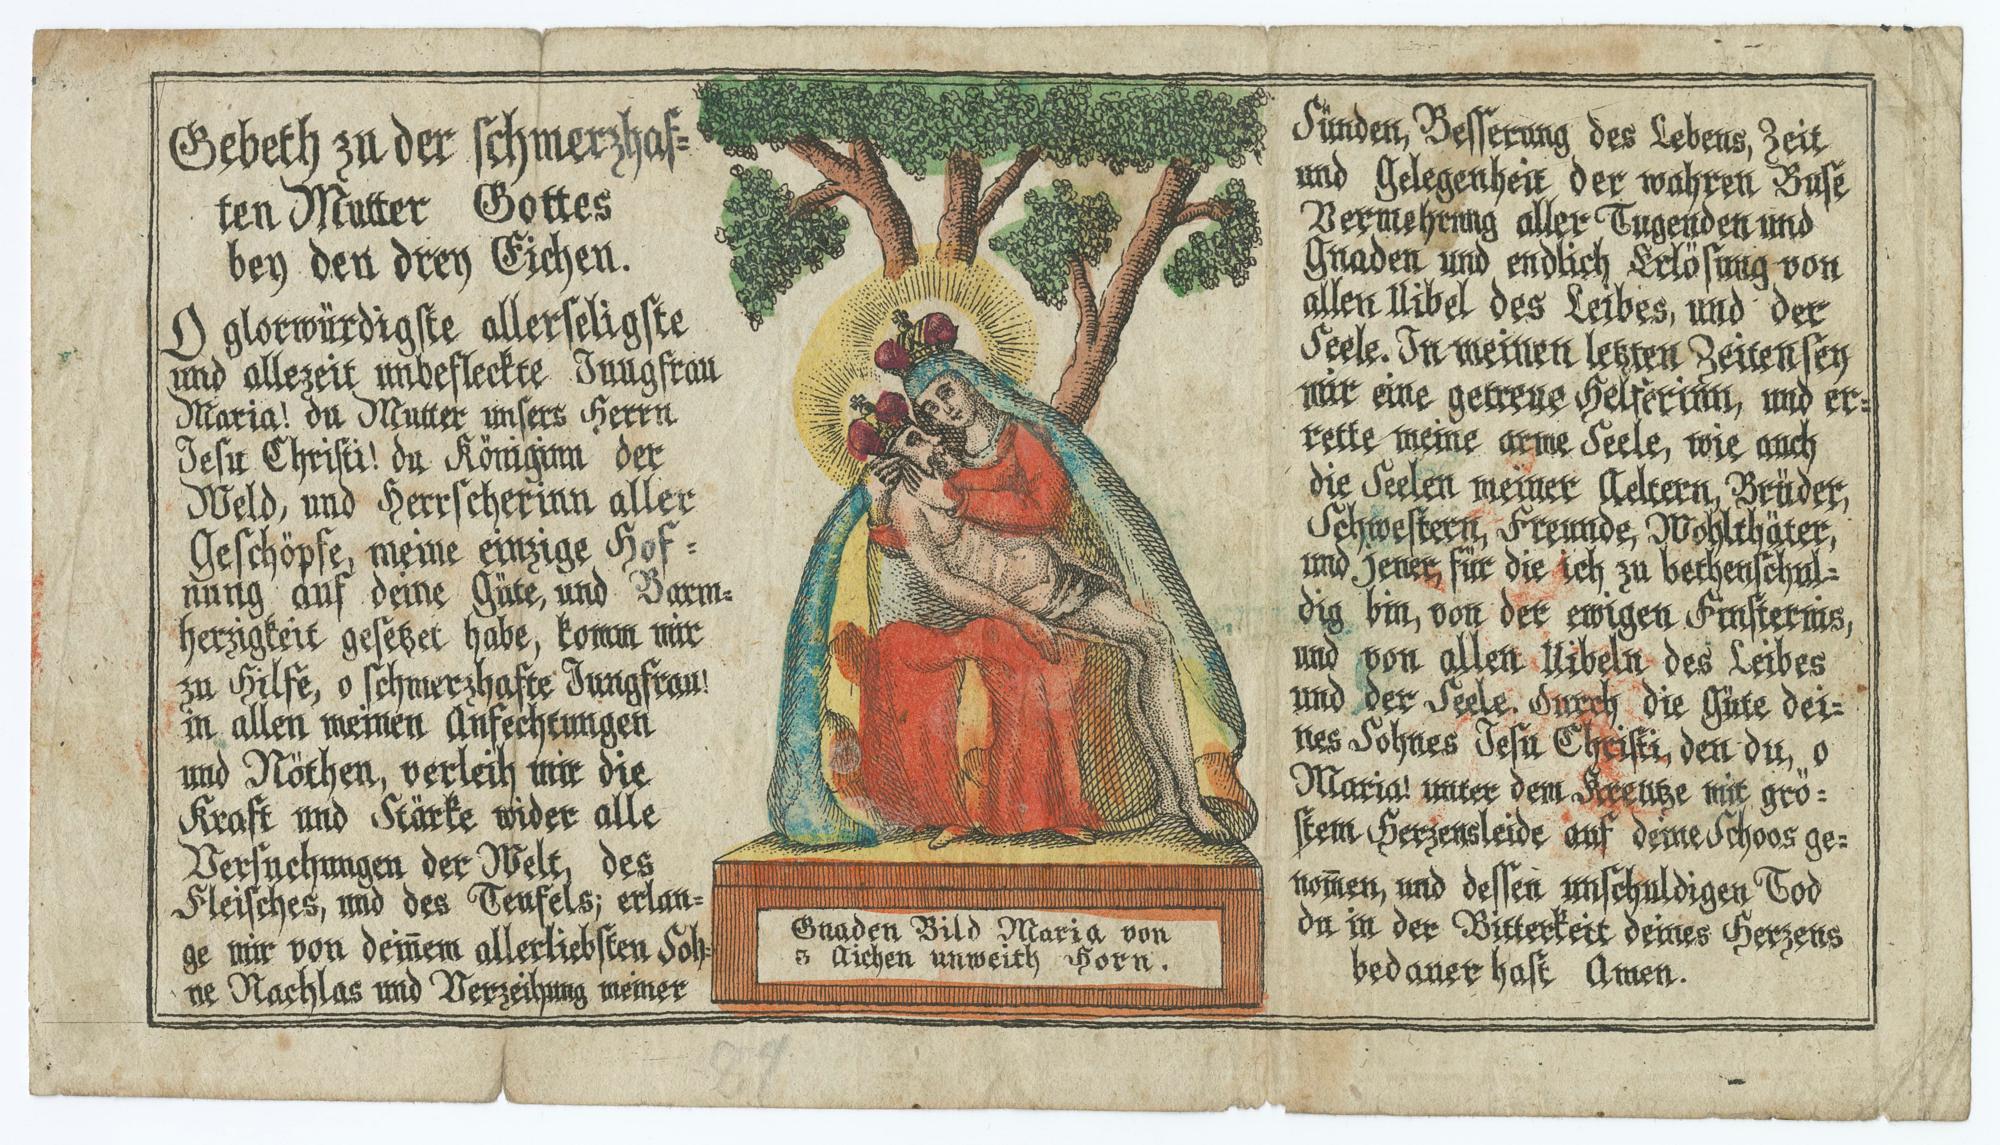 Gebeth zu der schmerzhaf=
ten Mutter Gottes
bey den drey Eichen.
O glorwürdigste allerseligste
und allezeit unbefleckte Jungfrau
Maria! du Mutter unsers Herrn
Jesu Christi! du Königinn der
Weld, und Herrscherinn aller
Geschöpfe, meine einzige Hof=
nung auf deine Güte, und Barm=
herzigkeit gesetzet habe, komm mir
zu Hilfe, o schmerzhafte Jungfrau!
in allen meinen Anfechtungen
und Nöthen, verleih mir die
Kraft und Stärke wider alle
Versuchungen der Welt, des
Fleisches, und des Teufels; erlan=
ge mir von deinem allerliebsten Soh=
ne Nachlas und Verzeihung meiner
Gnaden Bild Maria von
3 Aichen unweith Horn.
Sünden, Besserung des Lebens, Zeit
und Gelegenheit der wahren Buse
Vermehrung aller Tugenden und
Gnaden und endlich Erlösung von
allen Uibel des Leibes, und der
Seele. In meinen letzten Zeiten sey
mir eine getreue Helferinn, und er=
rette meine arme Seele, wie auch
die Seelen meiner Aeltern, Brüder,
Schwestern, Freunde, Wohlthäter,
und jener, für die ich zu bethen schul=
dig bin, von der ewigen Finsternis,
und von allen Uibeln des Leibes
und der Seele. Durch die Güte dei=
nes Sohnes Jesu Christi, den du, o
Maria! unter dem Kreutze mit grö=
stem Herzensleide auf deine Schoos ge=
nom̅en, und dessen unschuldigen Tod
du in der Bitterkeit deines Herzens
bedauer hast Amen.
84